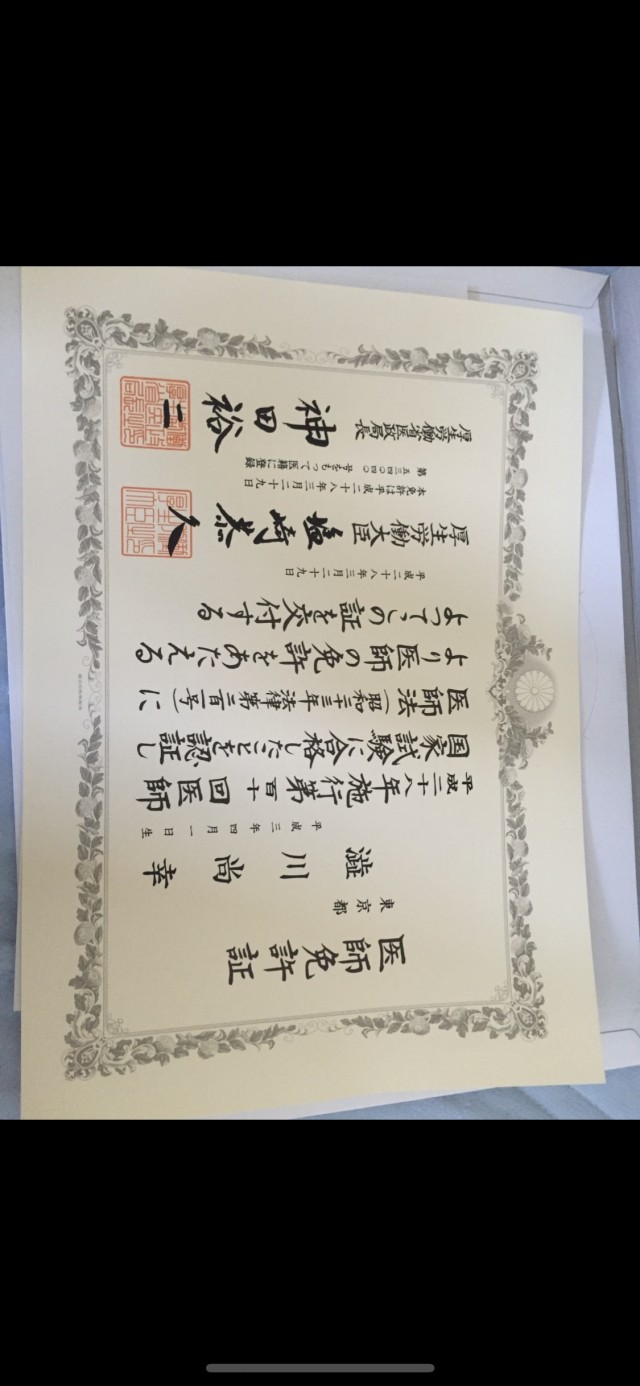 医師免許証
東京都
澁川尚幸
平成三年四月一日生
平成二十八年施行第百十回医師
国家試験に合格したことを認証し
医師法（昭和二十三年法律第二百一号）に
より医師の免許をあたえる
よってこの証を交付する
平成二十八年三月二十九日
厚生労働大臣 塩崎恭久
本免許は平成二十八年三月二十九日
第五三〇四〇〇号をもって医籍に登録
厚生労働省医政局長 神田裕二